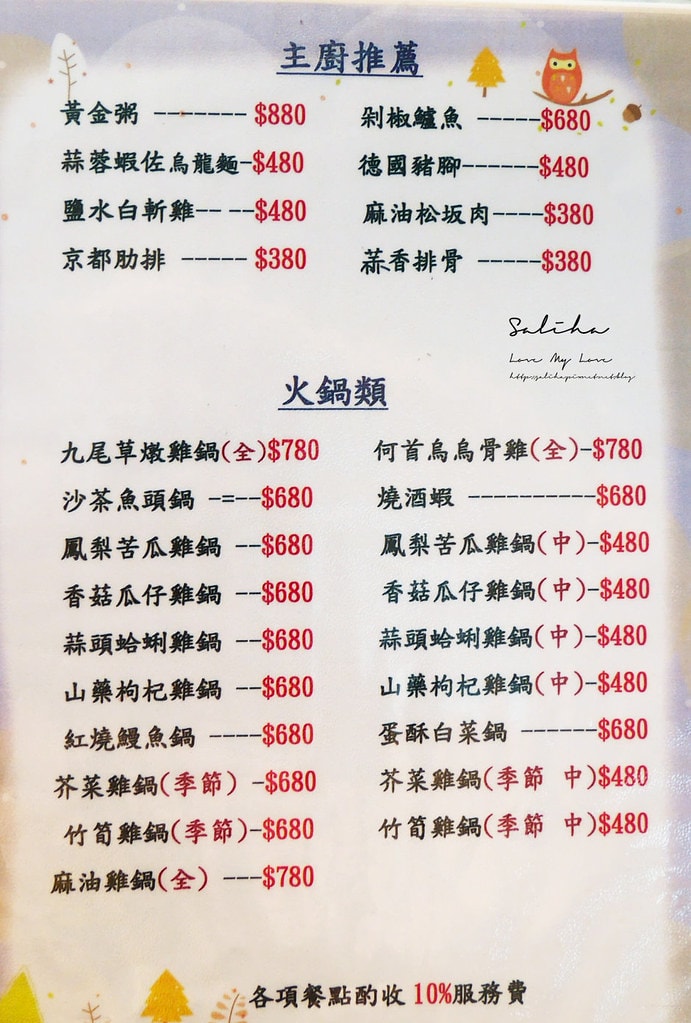 主廚推薦
黃金粥 ------- $880
剁椒鱸魚 -----$680
蒜蓉蝦佐烏龍麵-$480
德國豬腳------$480
鹽水白斬雞-- --$480
麻油松坂肉----$380
京都肋排 ----- $380
蒜香排骨 -----$380
Saliha
Love My Love
火鍋類
九尾草燉雞鍋(全)$780
何首烏烏骨雞(全)-$780
沙茶魚頭鍋 -=--$680
燒酒蝦 ----------$680
鳳梨苦瓜雞鍋 --$680
鳳梨苦瓜雞鍋(中)-$480
香菇瓜仔雞鍋 --$680
香菇瓜仔雞鍋(中)-$480
蒜頭蛤蜊雞鍋 --$680
蒜頭蛤蜊雞鍋(中)-$480
山藥枸杞雞鍋 --$680
山藥枸杞雞鍋(中)-$480
紅燒鰻魚鍋 ----$680
蛋酥白菜鍋 ------$680
芥菜雞鍋(季節) -$680
芥菜雞鍋(季節 中)$480
竹筍雞鍋(季節)-$680
竹筍雞鍋(季節 中)$480
麻油雞鍋(全) ---$780
各項餐點酌收 10%服務費